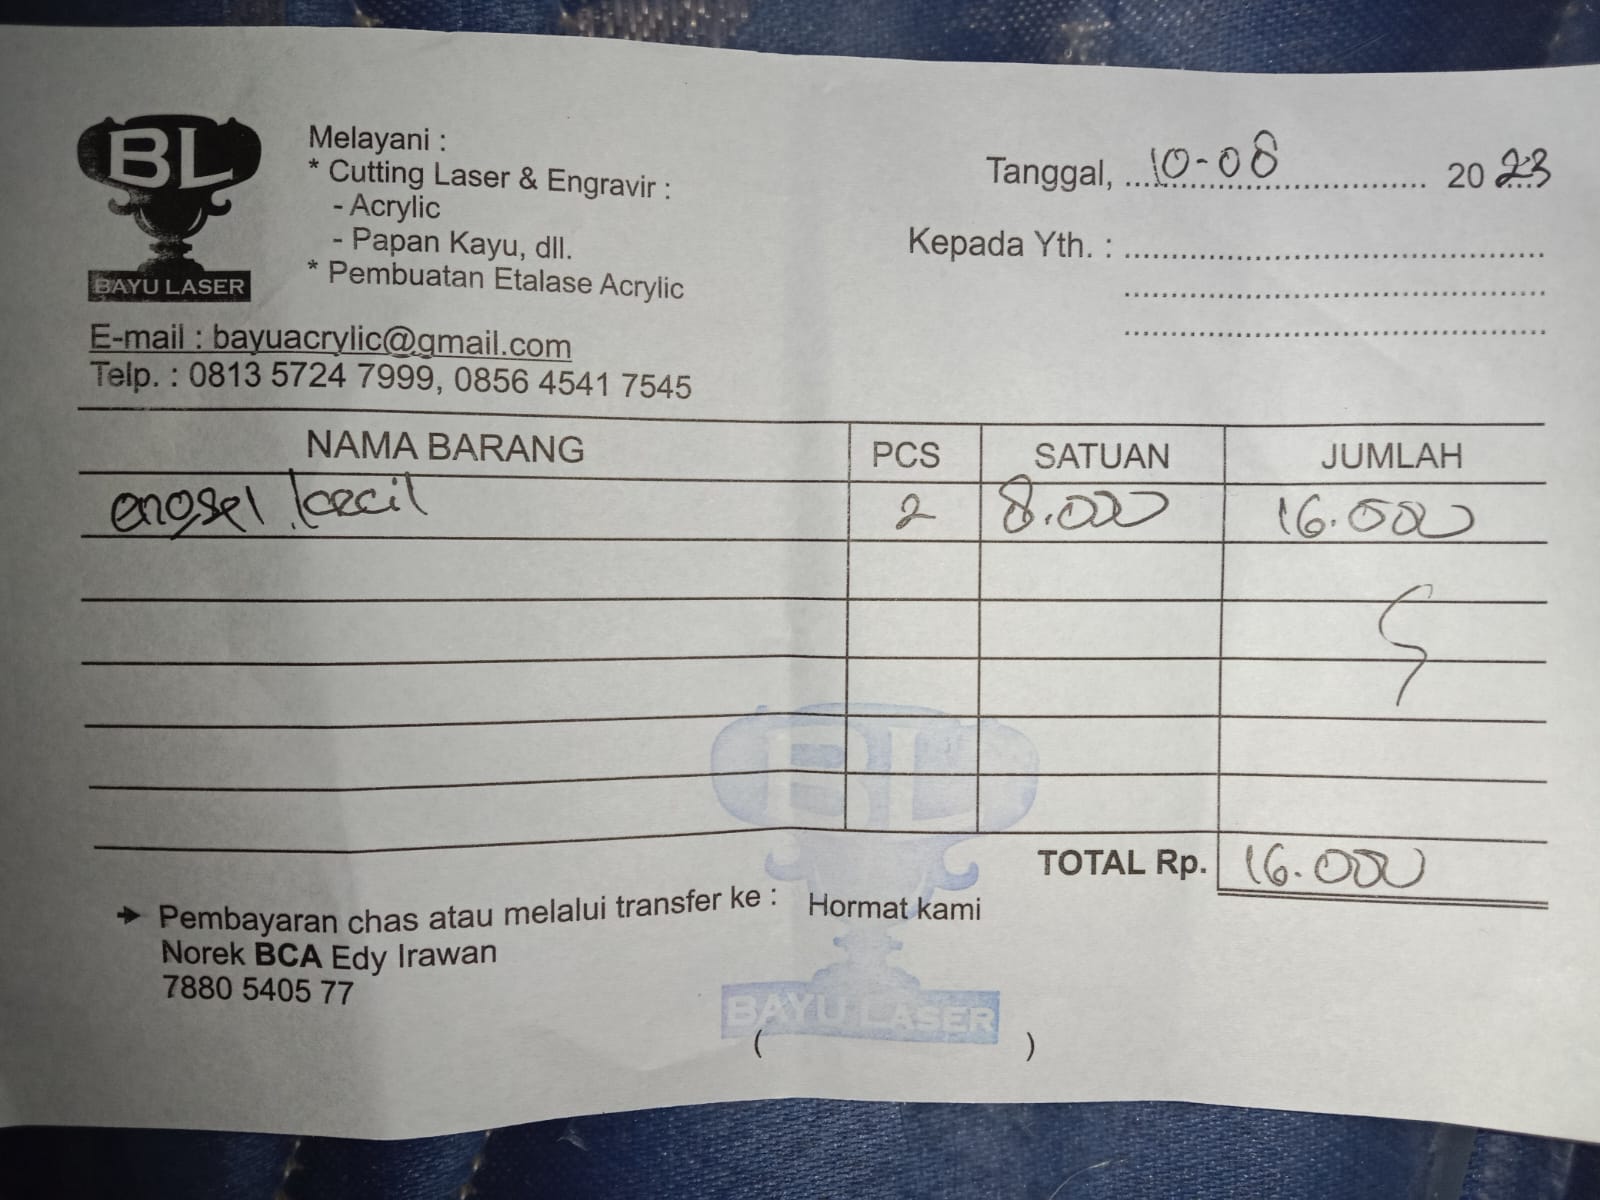 BL
BAYU LASER
Melayani :
* Cutting Laser & Engravir :
- Acrylic
- Papan Kayu, dll.
* Pembuatan Etalase Acrylic
E-mail : bayuacrylic@gmail.com
Telp. : 0813 5724 7999, 0856 4541 7545
Tanggal, 10-08 2023
Kepada Yth. :
NAMA BARANG PCS SATUAN JUMLAH
engsel kecil 2 8.000 16.000
TOTAL Rp. 16.000
→ Pembayaran chas atau melalui transfer ke :
Norek BCA Edy Irawan
7880 5405 77
Hormat kami
BL
BAYU LASER
( )